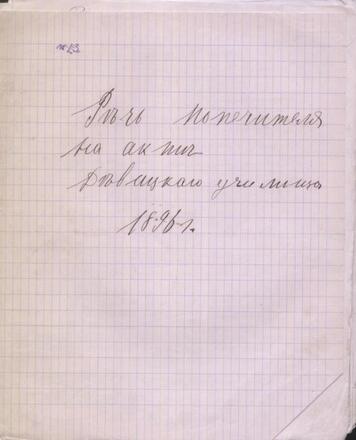 № 23
Рѣчь попечителя
на актѣ
Дѣвацкаго училища
1896 г.